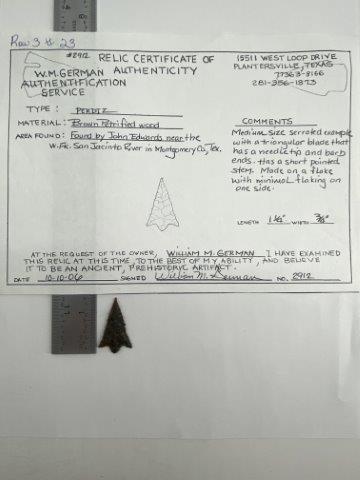 Row 3 # 23
#2912 RELIC CERTIFICATE OF AUTHENTICITY
W.M. GERMAN AUTHENTIFICATION SERVICE
15511 WEST LOOP DRIVE
PLANTERSVILLE, TEXAS
77363-8166
281-356-1873
TYPE: PERDIZ
MATERIAL: Brown Petrified wood
AREA FOUND: Found by John Edwards near the
W. Fk. San Jacinto River in Montgomery Co., Tex.
COMMENTS
Medium size serrated example
with a triangular blade that
has a needle tip and barb
ends. Has a short pointed
stem. Made on a flake
with minimol flaking on
one side.
LENGTH 1 1/2" WIDTH 7/8"
AT THE REQUEST OF THE OWNER, WILLIAM M. GERMAN I HAVE EXAMINED
THIS RELIC AT THIS TIME, TO THE BEST OF MY ABILITY, AND BELIEVE
IT TO BE AN ANCIENT, PREHISTORIC ARTIFACT.
DATE 10-10-06 SIGNED William M. German NO. 2912